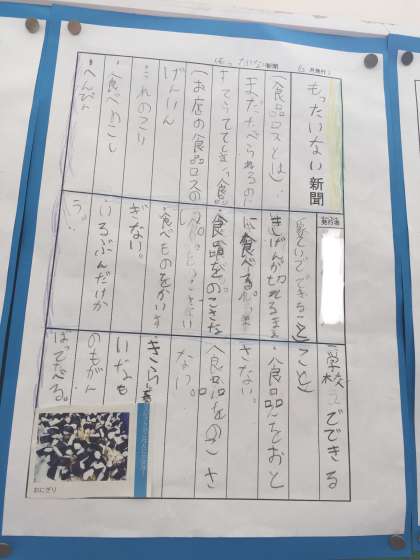 もったいない新聞
6月発行
もったいない新聞
発行者
(食品ロスとは)
まだたべられるのに
すててしまう食品
(お店の食品ロスの
げんいん
・うれのこり
・食べのこし
・へんぴん
(家ていでできること)
・きげんが切れるまえ
に食べる。
・食品をのこさな
い。
・食べものをかいす
ぎない。
・いるぶんだけか
う。
(学校でできる
こと)
・食品をおと
さない。
・食品をのこさ
ない。
・きらい
いなも
のもがん
ばってたべる。
おにぎり